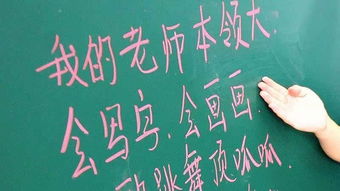 我的老师本领大.
会写字.会画画.
跳舞顶呱呱.